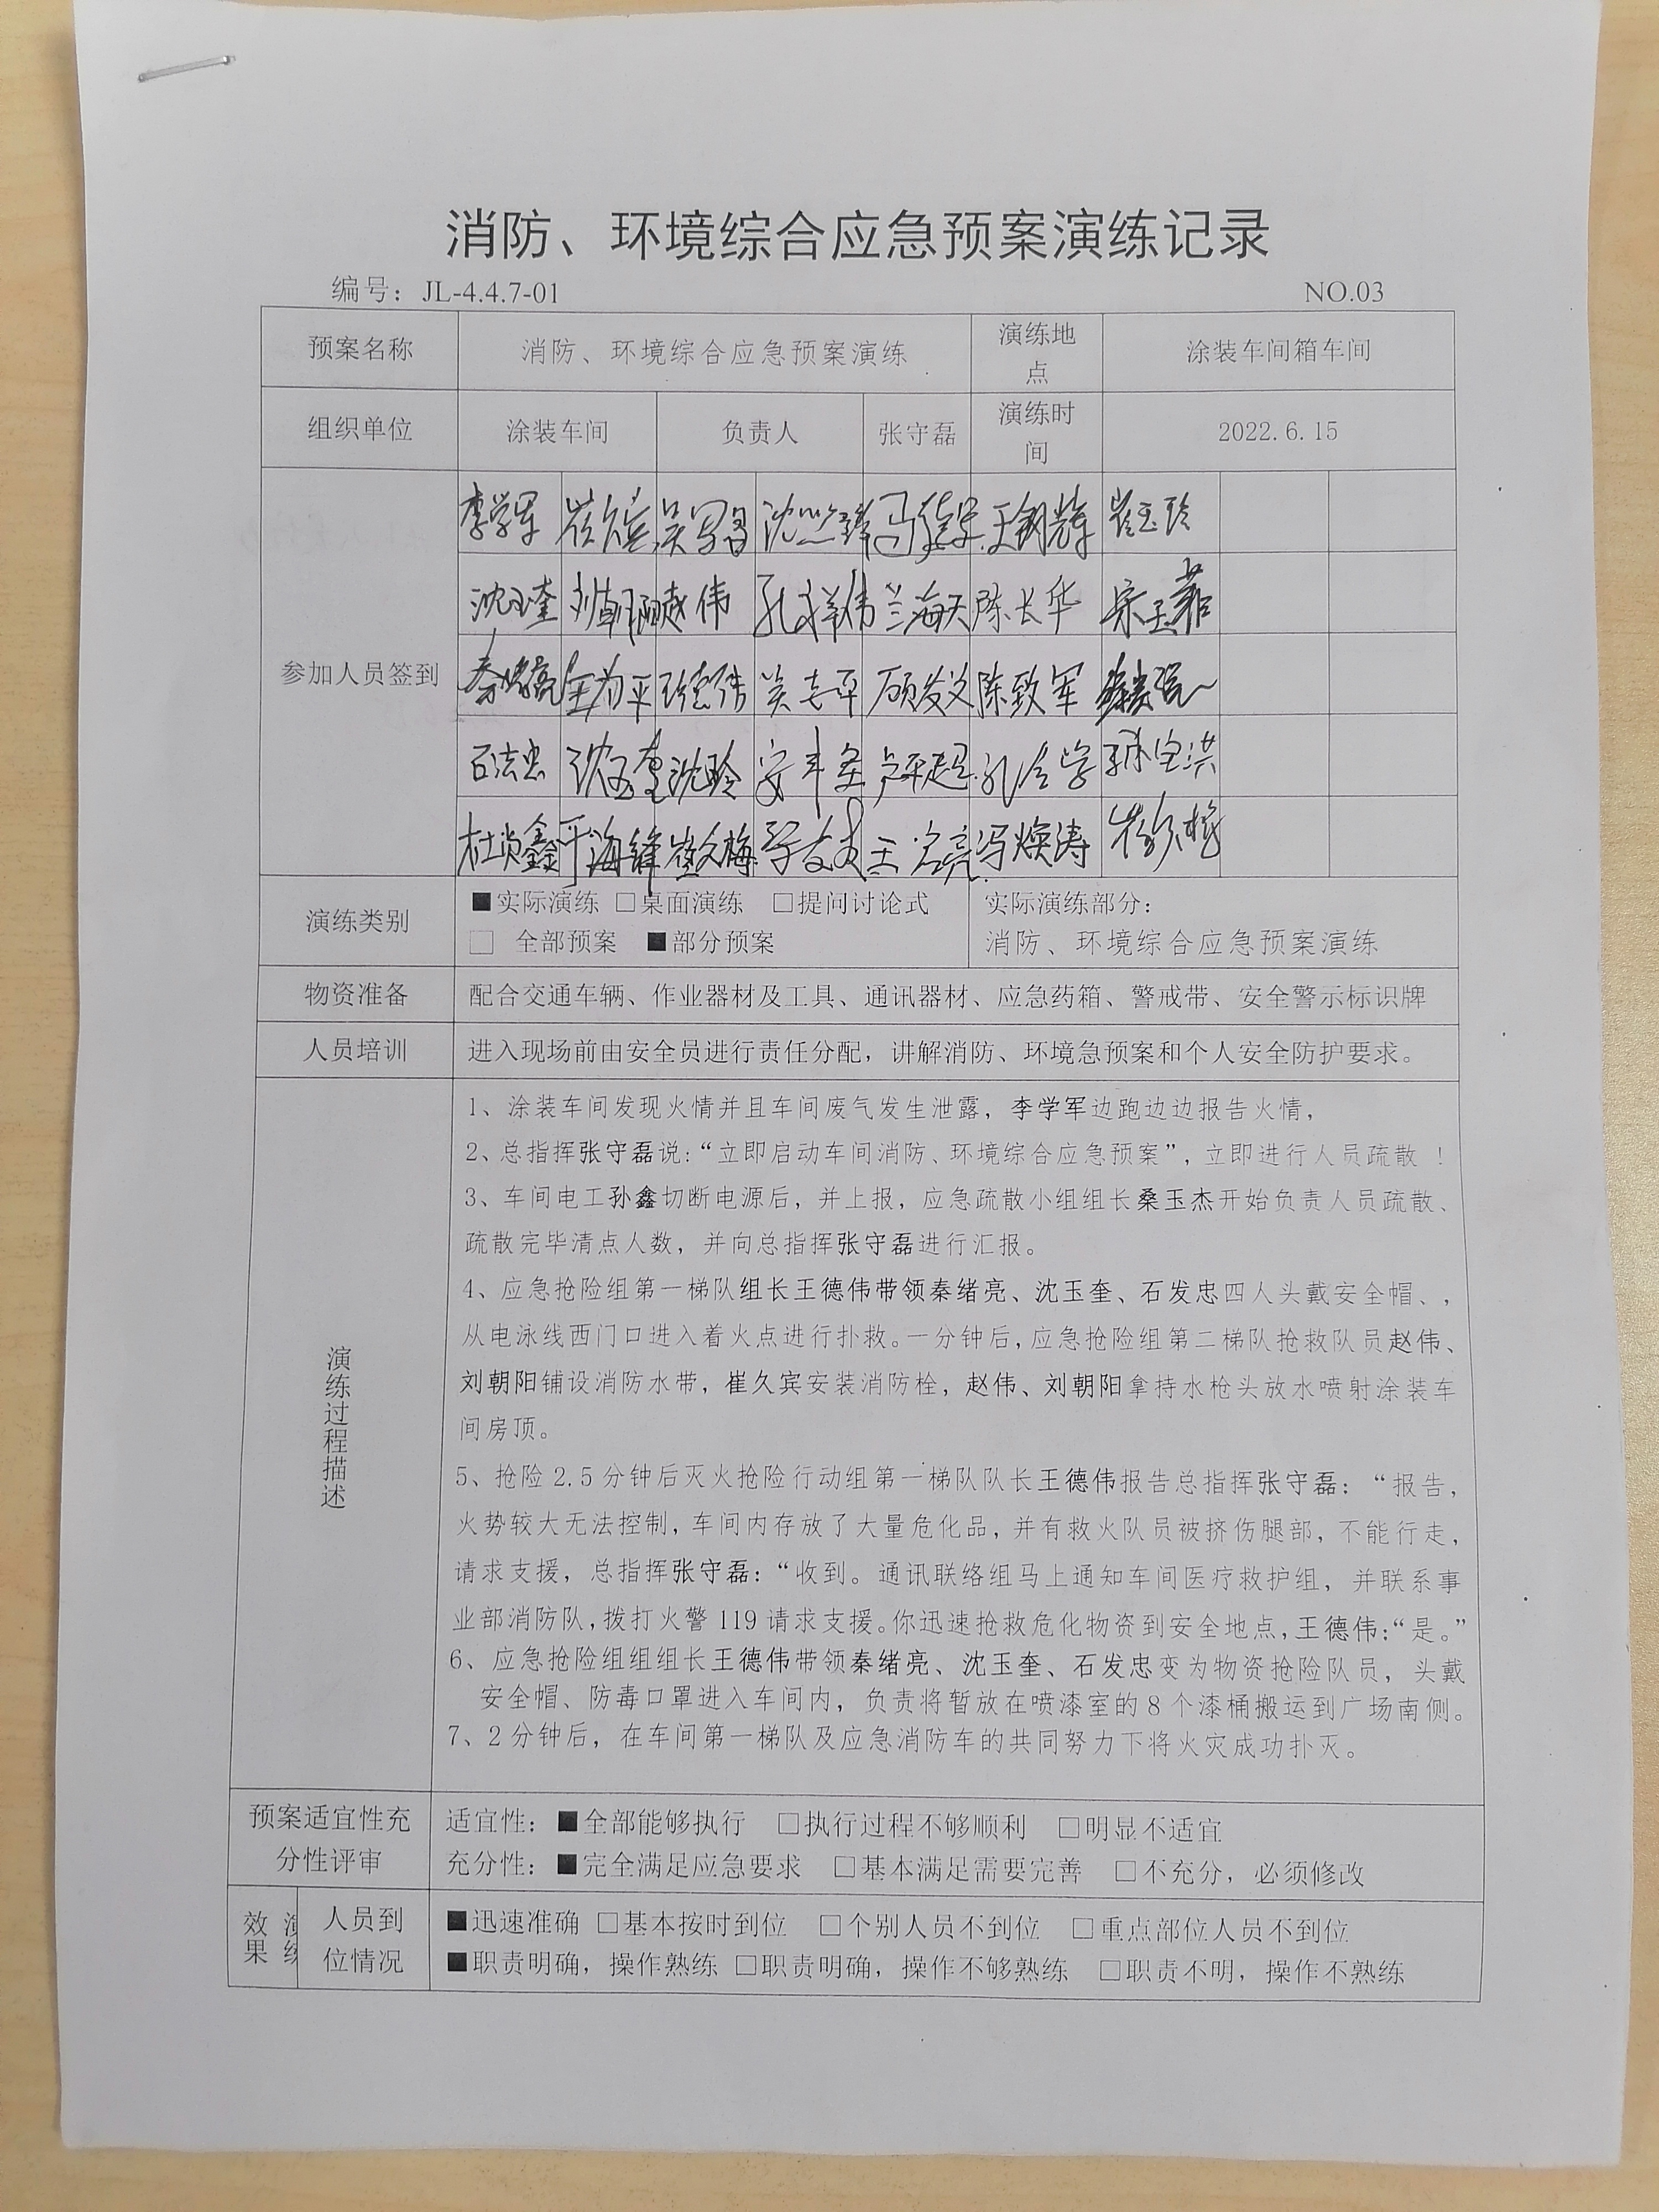 消防、环境综合应急预案演练记录
编号：JL-4.4.7-01 NO.03
预案名称 消防、环境综合应急预案演练 演练地点 涂装车间箱车间
组织单位 涂装车间 负责人 张守磊 演练时间 2022.6.15
参加人员签到
李学军 崔久宾 崔玉玲
沈玉奎 刘朝阳 赵伟 孔祥伟 兰海天 陈长华
秦绪亮 王德伟 吴志平 陈致军
石法忠 沈玲 孙宝洪
杜尚鑫 于海锋 崔久梅 王容亮 冯焕涛
演练类别 ■实际演练 □桌面演练 □提问讨论式 实际演练部分：
□ 全部预案 ■部分预案 消防、环境综合应急预案演练
物资准备 配合交通车辆、作业器材及工具、通讯器材、应急药箱、警戒带、安全警示标识牌
人员培训 进入现场前由安全员进行责任分配，讲解消防、环境急预案和个人安全防护要求。
演练过程描述
1、涂装车间发现火情并且车间废气发生泄露，李学军边跑边边报告火情，
2、总指挥张守磊说：“立即启动车间消防、环境综合应急预案”，立即进行人员疏散 ！
3、车间电工孙鑫切断电源后，并上报，应急疏散小组组长桑玉杰开始负责人员疏散、
疏散完毕清点人数，并向总指挥张守磊进行汇报。
4、应急抢险组第一梯队组长王德伟带领秦绪亮、沈玉奎、石发忠四人头戴安全帽、，
从电泳线西门口进入着火点进行扑救。一分钟后，应急抢险组第二梯队抢救队员赵伟、
刘朝阳铺设消防水带，崔久宾安装消防栓，赵伟、刘朝阳拿持水枪头放水喷射涂装车
间房顶。
5、抢险 2.5 分钟后灭火抢险行动组第一梯队队长王德伟报告总指挥张守磊：“报告，
火势较大无法控制，车间内存放了大量危化品，并有救火队员被挤伤腿部，不能行走，
请求支援，总指挥张守磊：“收到。通讯联络组马上通知车间医疗救护组，并联系事
业部消防队，拨打火警 119 请求支援。你迅速抢救危化物资到安全地点，王德伟：“是。”
6、应急抢险组组组长王德伟带领秦绪亮、沈玉奎、石发忠变为物资抢险队员，头戴
安全帽、防毒口罩进入车间内，负责将暂放在喷漆室的 8 个漆桶搬运到广场南侧。
7、2 分钟后，在车间第一梯队及应急消防车的共同努力下将火灾成功扑灭。
预案适宜性充分性评审 适宜性：■全部能够执行 □执行过程不够顺利 □明显不适宜
充分性：■完全满足应急要求 □基本满足需要完善 □不充分，必须修改
演练效果 人员到位情况 ■迅速准确 □基本按时到位 □个别人员不到位 □重点部位人员不到位
■职责明确，操作熟练 □职责明确，操作不够熟练 □职责不明，操作不熟练